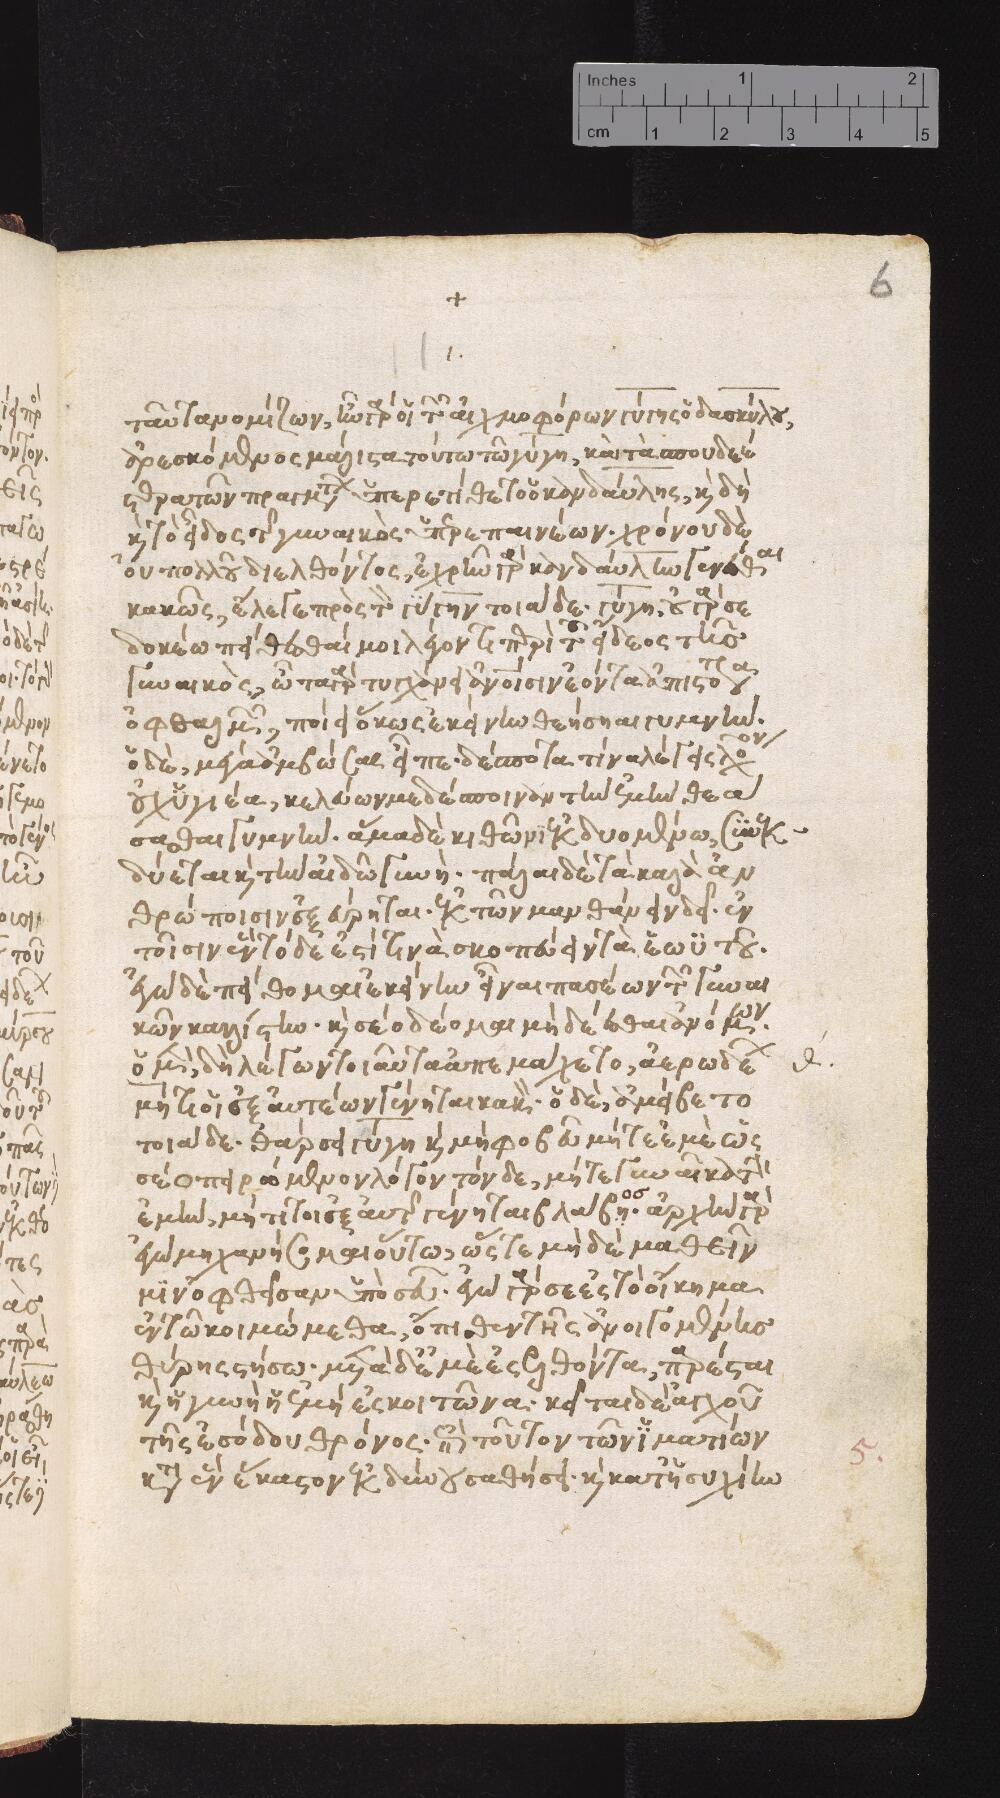 +
1.
ταῦτα νομίζων, ἦν γάρ οἱ τῶν αἰχμοφόρων γύγης ὁ δασκύλου,
ἀρεσκόμενος μάλιστα τούτω τῶ γύγη, καὶ τὰ σπουδεέ
στερα τῶν πραγμάτων ὑπερετίθετο ὁ κανδαύλης, καὶ δὴ
καὶ τὸ εἶδος τῆς γυναικὸς ὑπερεπαινέων. χρόνου δὲ
οὐ πολλοῦ διελθόντος, ἐχρῆν γὰρ κανδαύλην γενέσθαι
κακῶς, ἔλεγε πρὸς τὸν γύγην τοιάδε. γύγη, οὐ γάρ σε
δοκέω πείθεσθαί μοι λέγοντι περὶ τοῦ εἴδεος τῆς
γυναικὸς, ὦτα γὰρ τυγχάνει ἀνοῖσιν ἐόντα ἀπιστότερα
ὀφθαλμῶν, ποίει ὅκως ἐκείνην θεήσηαι γυμνήν.
ὁ δὲ, μέγα ἀμβώσας εἶπε. δέσποτα τίνα λέγεις λόγον
οὐχ ὑγιέα, κελεύων με δέσποιναν τὴν ἐμὴν θεά
σασθαι γυμνήν. ἅμα δὲ κιθῶνι ἐκδυομένω, συνεκ-
δύεται καὶ τὴν αἰδῶ γυνή. πάλαι δὲ τὰ καλὰ ἀν
θρώποισιν ἐξεύρηται. ἐκ τῶν μανθάνειν δεῖ. ἐν
τοῖσιν ἓν τόδε ἐστί τινὰ σκοπέειν τὰ ἑωϋτοῦ.
ἐγὼ δὲ πείθομαι ἐκείνην εἶναι πασέων τῶν γυναι
κῶν καλλίστην. καὶ σέο δέομαι μὴ δέεσθαι ἀνόμων.
ὁ μὲν δὴ λέγων τοιαῦτα ἀπεμάχετο, ἀρρωδέων
μή τι οἱ ἐξ αὐτέων γένηται κακόν. ὁ δὲ, ἀμείβετο
τοιάδε. θάρσει γύγη καὶ μὴ φοβεῦ μήτε ἐμὲ ὥς
σέο πειρώμενον λόγον τόνδε, μήτε γυναῖκα τὴν
ἐμὴν, μή τί τοι ἐξ αὐτῆς γένηται βλάβος. ἀρχὴν γὰρ
ἐγὼ μηχανήσομαι οὕτω, ὥστε μὴ δὲ μαθεῖν
μιν ὀφθεῖσαν ὑπὸ σεῦ. ἐγὼ γάρ σε ἐς τὸ οἴκημα
ἐν τῶ κοιμώμεθα, ὄπισθεν τῆς ἀνοιγομένης
θύρης στήσω. μετὰ δὲ ἐμὲ ἐσελθόντα, παρέσται
καὶ ἡ γυνὴ ἡ ἐμὴ ἐς κοιτῶνα. κεῖται δὲ ἀγχοῦ
τῆς ἐσόδου θρόνος. ἐπὶ τοῦτον τῶν ἱματίων
κατὰ ἓν ἕκαστον ἐκδύουσα θήσει. καὶ κατ' ἡσυχίην
θ.
6
5.